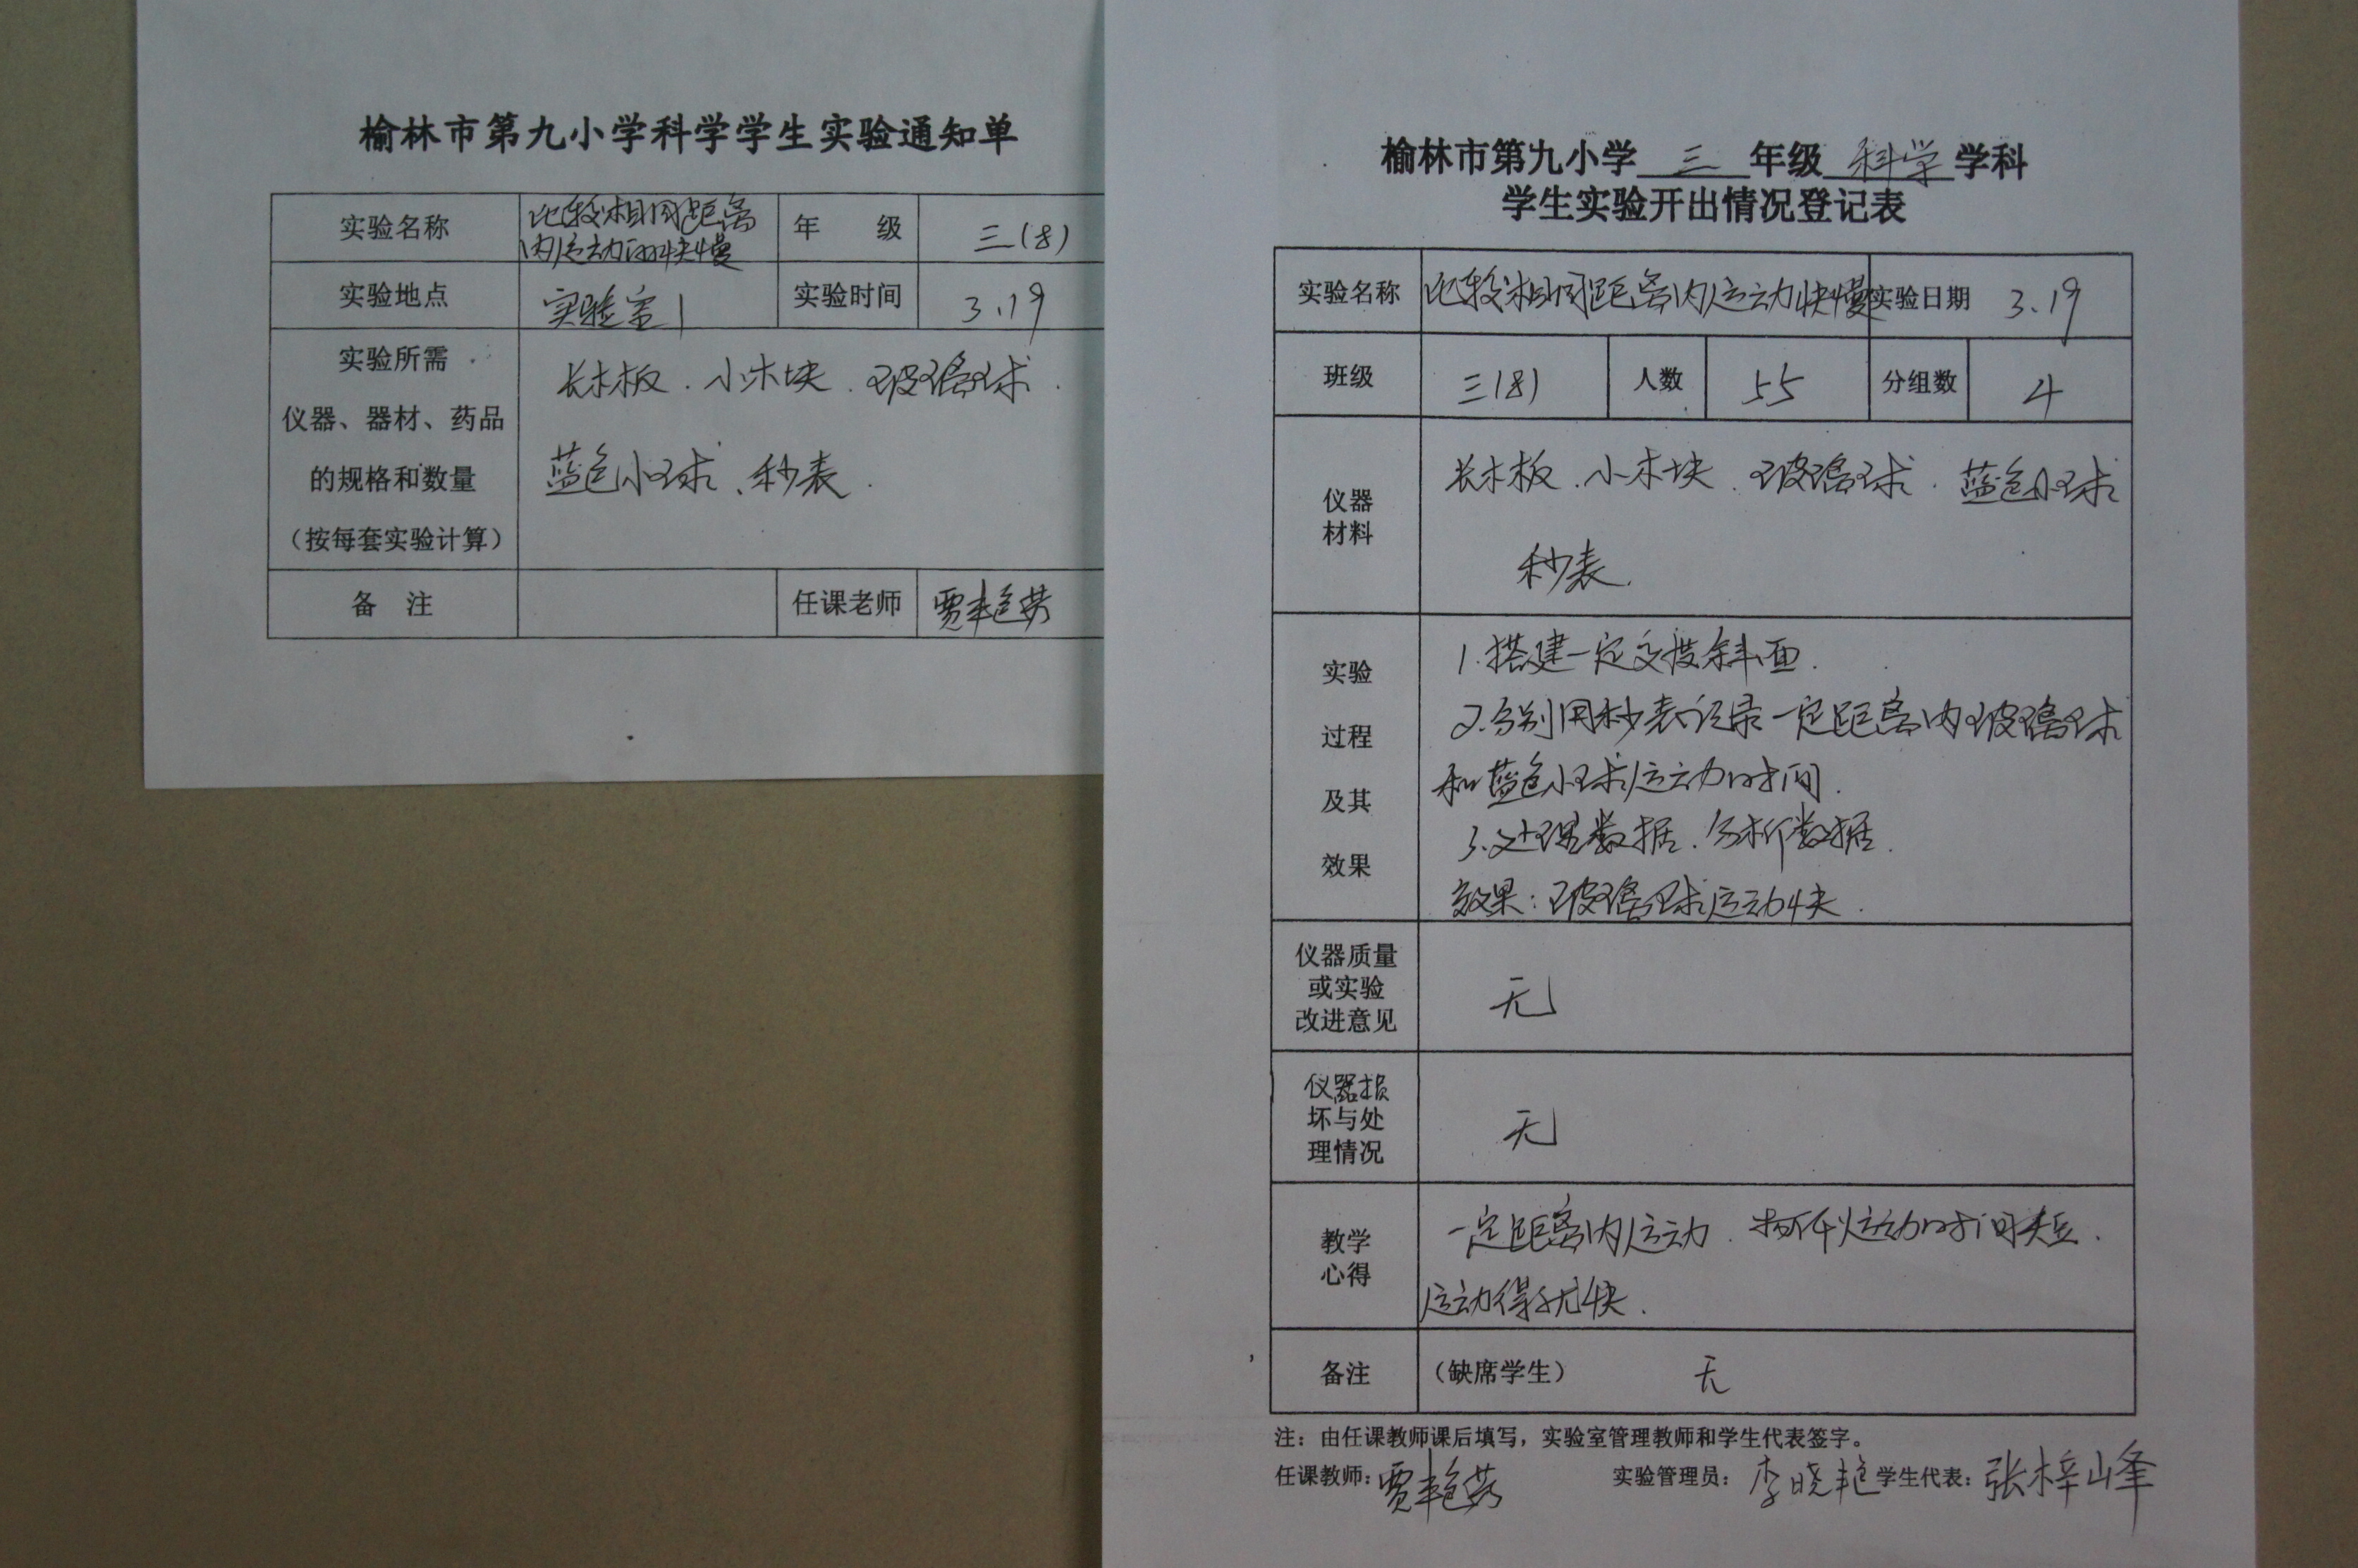 榆林市第九小学科学学生实验通知单
实验名称 比较相同距离内运动的快慢 年 级 三(8)
实验地点 实验室1 实验时间 3.19
实验所需
仪器、器材、药品
的规格和数量
(按每套实验计算)
长木板.小木块.玻璃球.
蓝色小球、秒表.
备 注 任课老师 贾艳芬
榆林市第九小学 三 年级 科学 学科
学生实验开出情况登记表
实验名称 比较相同距离内运动快慢 实验日期 3.19
班级 三(8) 人数 55 分组数 4
仪器
材料
长木板.小木块.玻璃球.蓝色小球
秒表.
实验
过程
及其
效果
1.搭建一定高度斜面.
2.分别用秒表记录一定距离内玻璃球
和蓝色小球运动时间.
3.处理数据.分析数据.
效果:玻璃球运动快.
仪器质量
或实验
改进意见
无
仪器损
坏与处
理情况
无
教学
心得
一定距离内运动.物体运动时间短.
运动得就快.
备注 (缺席学生) 无
注:由任课教师课后填写,实验室管理教师和学生代表签字。
任课教师:贾艳芬 实验管理员:李晓艳 学生代表:张梓峰